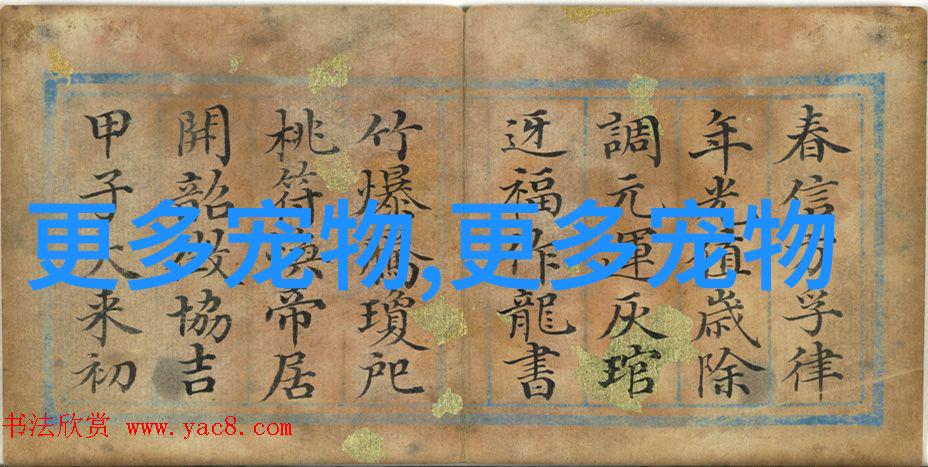 春信孚律
年光值歲除
調元運灰琯
迓福作龍書
竹爆瓊戺
桃符帝居
開韶協吉
甲子大来初
更多宠物,更多宠物
书法欣赏 www.yac8.com